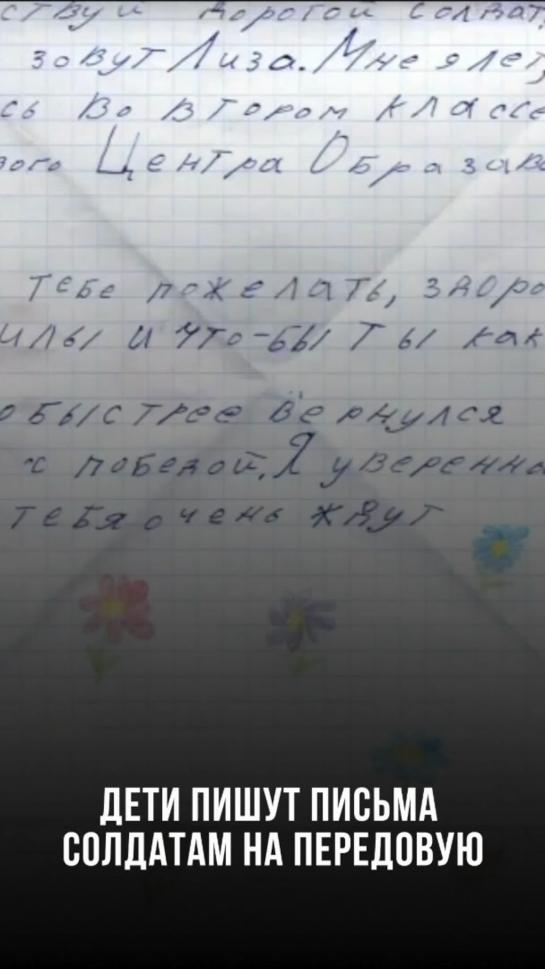 ствуй дорогой солдат,
зовут Лиза. Мне 8 лет,
сь во втором классе
вого Центра Образова
тебе пожелать, здоро
илы и что-бы ты как
о быстрее вернулся
с победой. Я уверенна
тебя очень ждут
ДЕТИ ПИШУТ ПИСЬМА
СОЛДАТАМ НА ПЕРЕДОВУЮ